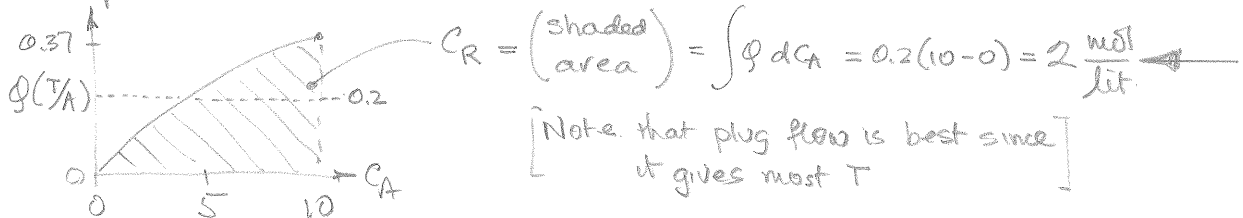 0.37
φ(T/A)
0.2
0
0 5 10
C_A
C_R = (shaded area) = ∫φ dC_A = 0.2(10-0) = 2 mol/lit.
[Note that plug flow is best since
it gives most T]